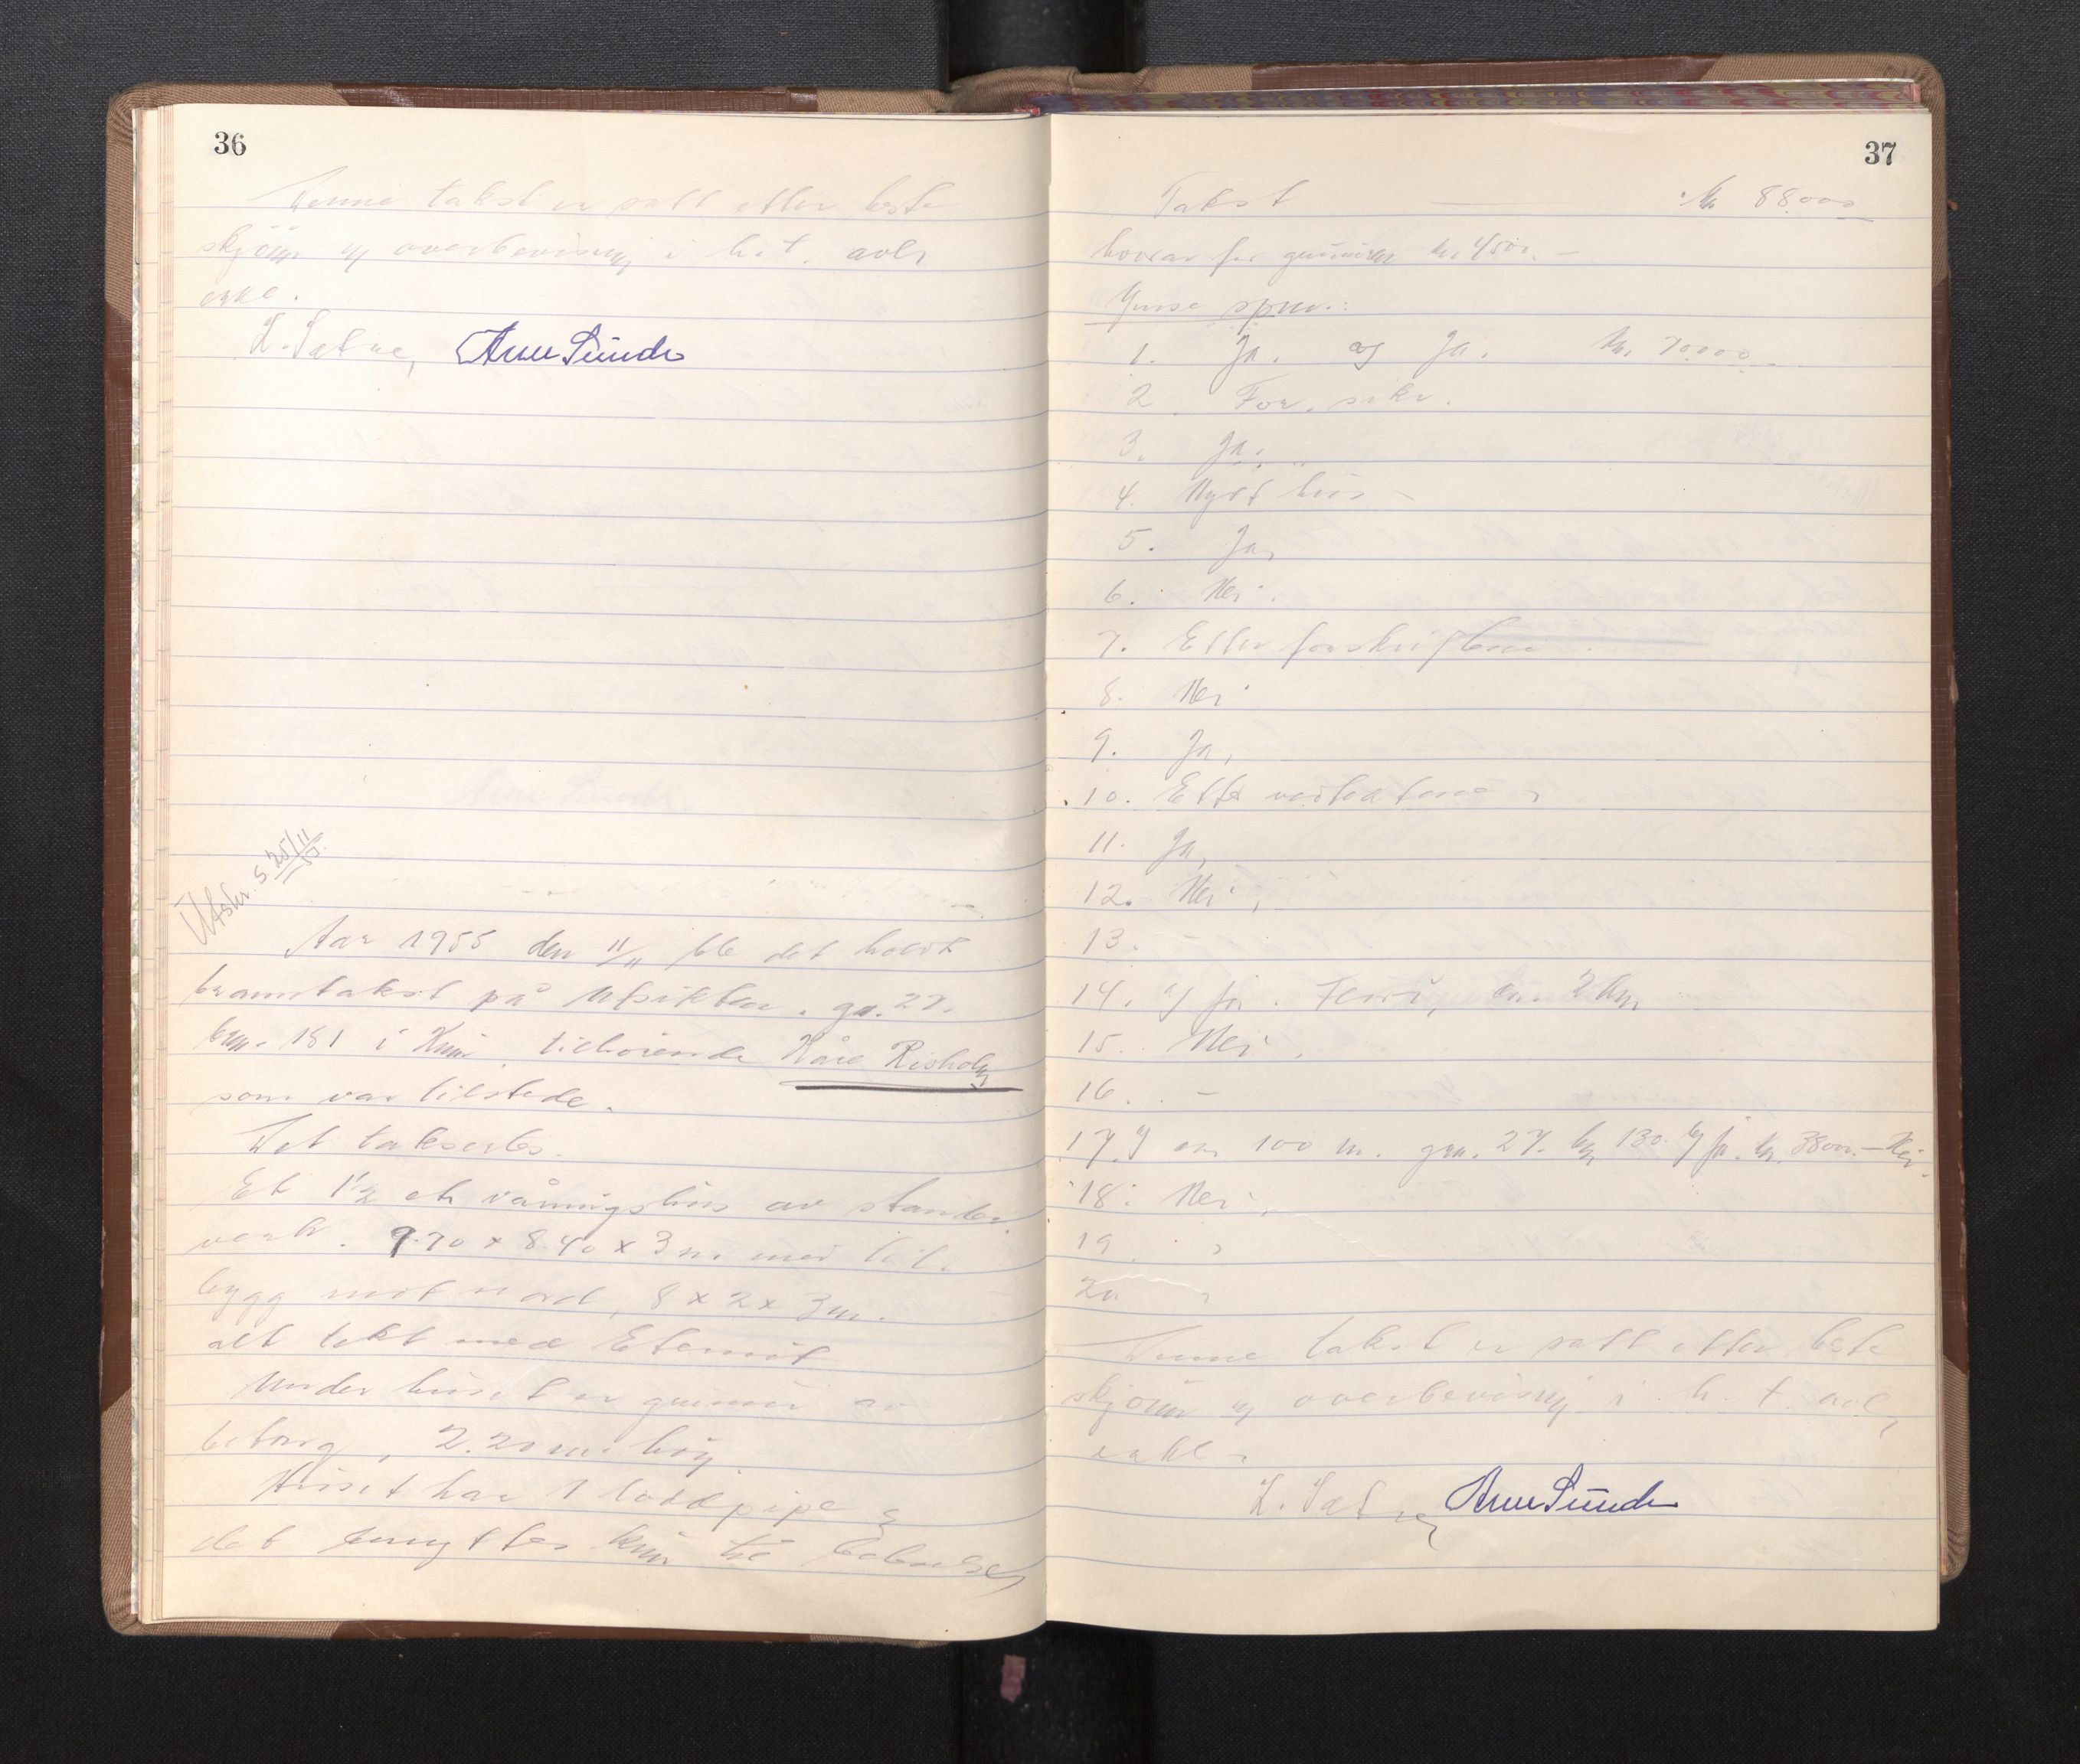 36
Denne takst er satt etter beste
skjönn og overbevisning i h.t. avls
L. Sætre, Arne Sunde
Utskr. S. 25/11 55.
Aar 1955 den 11/11 ble det holdt
branntakst på Utsikten. gn. 27.
brn. 181 i tilhörende Kåre Risholm
som var tilstede.
Det takserts.
Et 1½ et. våningshus av stender
verk. 9.70 x 8.40 x 3 m. med til.
bygg mot nord, 8 x 2 x 3 m.
alt tekt med Eternit
Under huset er grunnmur av
betong, 2.20 m. höy
Huset har 1 loddpipe og
det benyttes kun til beboelse,
37
Takst Kr 88.000
hvorav for grunnmur kr. 4500.-
1. Ja. og Ja. Kr. 70.000
2. For. sikr.
3. Ja.
4. Nytt hus -
5. Ja,
6. Nei.
7. Etter forskriftene.
8. Nei
9. Ja,
10. Etter vedtektene
11. Ja,
12. Nei,
13.
14. og ja. 2 km
15. Nei.
16. -
17. 100 m. gn. 27. 130. ja. kr. 3800.- Nei.
18. Nei,
19.
20
Denne takst er satt etter beste
skjönn og overbevisning i h.t. avl,
L. Sætre, Arne Sunde